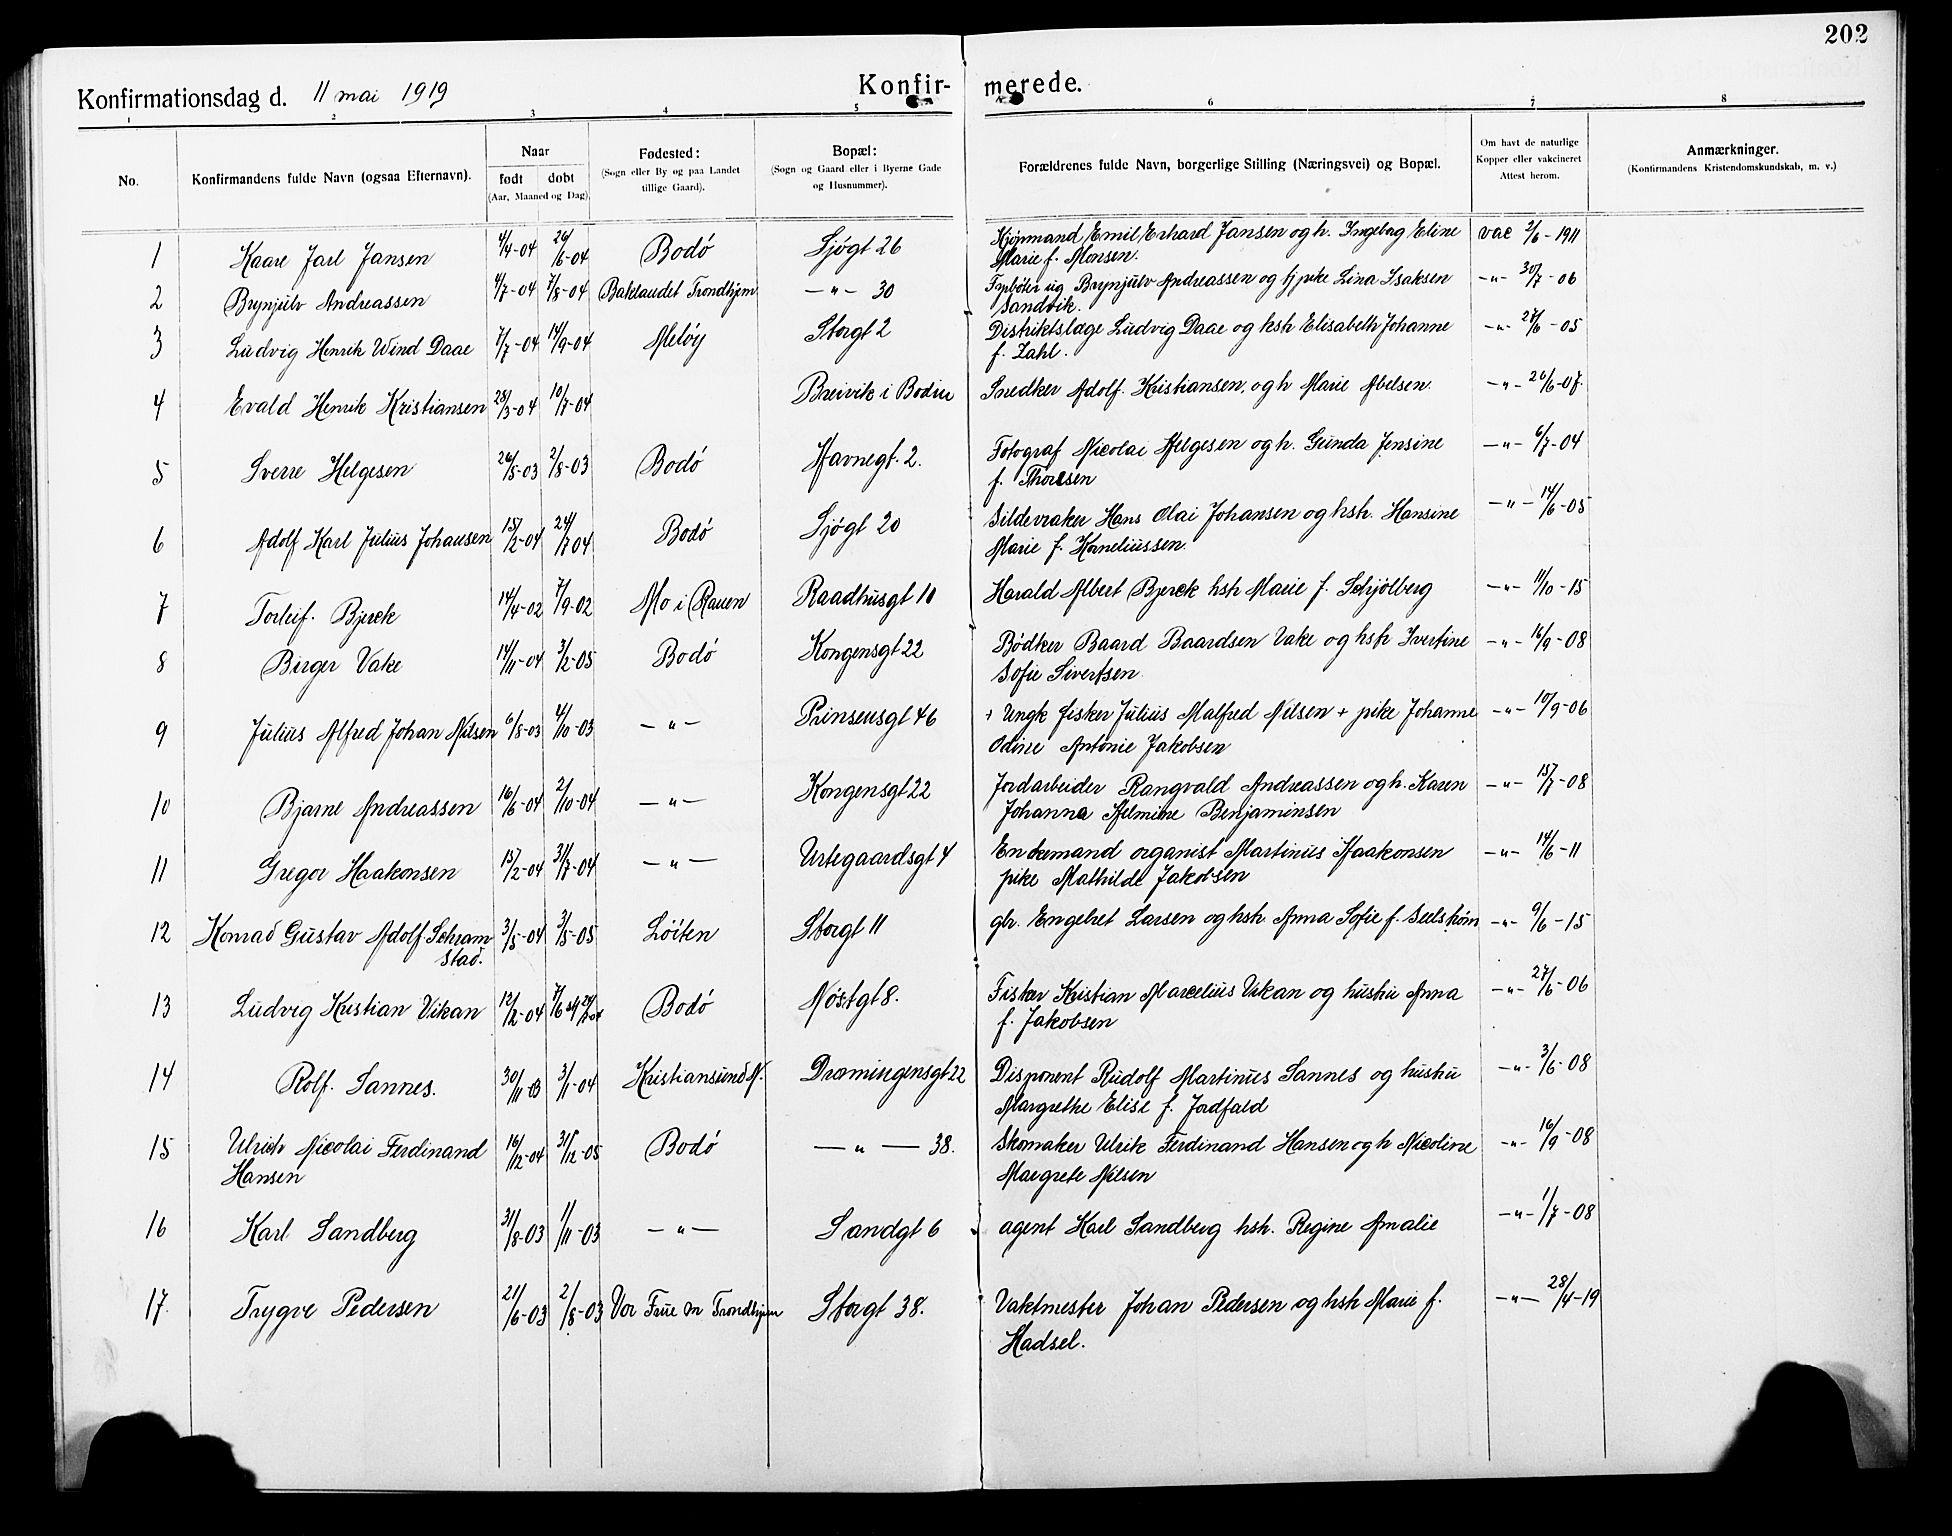 202
Konfirmationsdag d. 11 mai 1919
Konfir- merede.
1 2 3 4 5 6 7 8
No.
Konfirmandens fulde Navn (ogsaa Efternavn).
Naar
født døbt
(Aar, Maaned og Dag).
Fødested:
(Sogn eller By og paa Landet
tillige Gaard).
Bopæl:
(Sogn og Gaard eller i Byerne Gade
og Husnummer).
Forældrenes fulde Navn, borgerlige Stilling (Næringsvei) og Bopæl.
Om havt de naturlige
Kopper eller vakcineret
Attest herom.
Anmærkninger.
(Konfirmandens Kristendomskundskab, m. v.)
1 Kaare Jarl Jansen 4/4-04 26/6-04 Bodó Sjógt 26 Kjópmand Emil Erhard Jansen og h. Ingebog Eline vac 3/6-1911
Marie f. Monsen.
2 Brynjulv Andreassen 4/7-04 7/8-04 Baklandet Trondhjem -"- 30 ug Brynjulv Andreassen og tj pike Lina Isaksen -"- 30/7-06
Sandvik.
3 Ludvig Henrik Wind Daae 7/7-04 14/9-04 Melóy Storgt 2 Distriktslæge Ludvig Daae og hsh Elisabeth Johanne -"- 27/6-05
f. Zahl.
4 Evald Henrik Kristiansen 28/3-04 10/7-04 Breivik i Bodin Snedker Adolf Kristiansen, og h Marie Abelsen -"- 26/6-07.
5 Sverre Helgesen 26/5-03 2/8-03 Bodó Havnegt. 2. Fotograf Nicolai Helgesen og h. Gunda Jensine -"- 6/7-04
f. Thoresen
6 Adolf Karl Julius Johansen 15/2-04 24/7 04 Bodó Sjógt 20 Sildevraker Hans Olai Johansen og hsh. Hansine -"- 14/6-05
Marie f. Korneliussen.
7 Torleif. Bjerck 14/4-02 7/9-02 Mo i Ranen Raadhusgt 10 Harald Albert Bjerck hsh Marie f. Schjólberg -"- 11/10-15
8 Birger Vake 14/11-04 3/2-05 Bodó Kongensgt 22 Bódker Baard Baardsen Vake og hsh Ivertine -"- 16/9-08
Sofie Sivertsen
9 Julius Alfred Johan Nilsen 6/8-03 4/10-03 -"- Prinsensgt 46 + Ungk fisker Julius Malfred Nilsen + pike Johanne -"- 10/9-06
Odine Antonie Jakobsen
10 Bjarne Andreassen 16/6-04 2/10-04 -"- Kongensgt 22 Jordarbeider Rangvald Andreassen og h. Karen -"- 15/7-08
Johanna Helmine Benjaminsen
11 Gregor Haakonsen 15/2-04 31/7-04 -"- Urtegaardsgt 4 Enkemand organist Martinus Haakonsen -"- 14/6-11
pike Mathilde Jakobsen
12 Konrad Gustav Adolf Schram 3/5-04 3/5-05 Lóiten Storgt 11 gbr. Engebret Larsen og hsh Anna Sofie f. -"- 9/6-15
stad.
13 Ludvig Kristian Vikan 12/2-04 Bodó Nóstgt 8. Fisker Kristian Marcelius Vikan og hustru Anna -"- 27/6-06
f. Jakobsen
14 Rolf. Sannes. 30/11-03 3/1-04 Kristiansund N. Dronningensgt 22 Disponent Rudolf Martinus Sannes og hustru -"- 3/6-08
Margrethe Elise f. Jordfald
15 Ulrich Nicolai Ferdinand 16/12-04 31/12-05 Bodó -"- 38. Skomaker Ulrik Ferdinand Hansen og h Nicoline -"- 16/9-08
Hansen Margrete Nilsen
16 Karl Sandberg 31/8-03 1/11-03 -"- Sandgt 6 agent Karl Sandberg hsh. Regine Amalie -"- 1/7-08
17. Trygve Pedersen 21/6-03 2/8-03 Vor Frue m Trondhjem Storgt 38. Vaktmester Johan Pedersen og hsh Marie f. -"- 28/4-19
Hadsel.